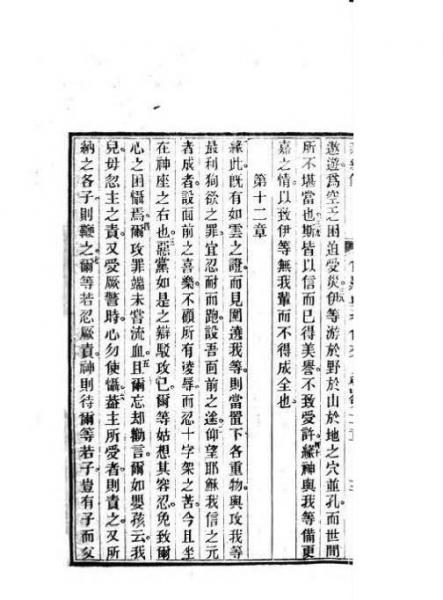 遨遊爲空乏困迫受災伊等游於野於山於地之穴並孔而世間
所不堪當也斯皆以信而已得美譽不致愛許緣神與我等備更
嘉之情以致伊等無我輩而不得成全也
第十二章
緣此既有如雲之證而見圍遶我等則當置下各重物與攻我等
最利狥欲之罪宜忍耐而跑設吾面前之途仰望耶穌我信之元
者成者設面前之喜樂不顧所有凌辱而忍十字架之苦今且坐
在神座之右也惡黨如是之辯駁攻已爾等姑想其容忍免致爾
心之困懾焉爾攻罪端未嘗流血且爾忘却勸言爾如嬰孩云我
兒毋忽主之責又受厥警時心勿使懾葢主所愛者則責之又所
納之各子則鞭之爾等若忍厥責神則待爾等若子豈有子而父